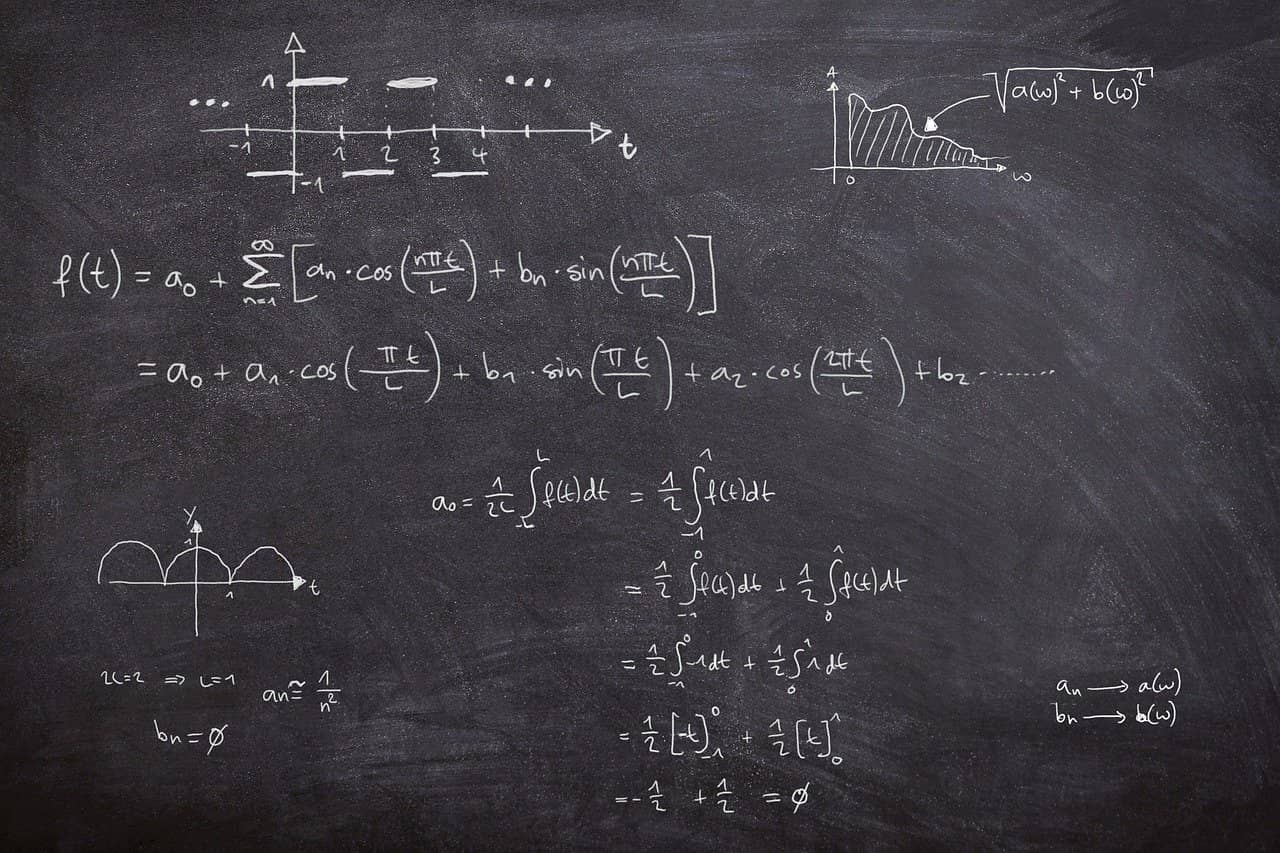 1
... ...
-1 1 2 3 4 t
-1
A
√(a(ω)² + b(ω)²)
0 ω
f(t) = a₀ + ∑ₙ₌₁^∞ [aₙ · cos(nπt/L) + bₙ · sin(nπt/L)]
= a₀ + a₁ · cos(πt/L) + b₁ · sin(πt/L) + a₂ · cos(2πt/L) + b₂ ........
a₀ = 1/2L ∫₋L^L f(t)dt = 1/2 ∫₋₁^1 f(t)dt
= 1/2 ∫₋₁^0 f(t)dt + 1/2 ∫₀^1 f(t)dt
= 1/2 ∫₋₁^0 -1dt + 1/2 ∫₀^1 1dt
= 1/2 [-t]₋₁^0 + 1/2 [t]₀^1
= -1/2 + 1/2 = ∅
y
1
1 t
2L=2 ⇒ L=1 aₙ ≅ 1/n²
bₙ = ∅
aₙ → a(ω)
bₙ → b(ω)